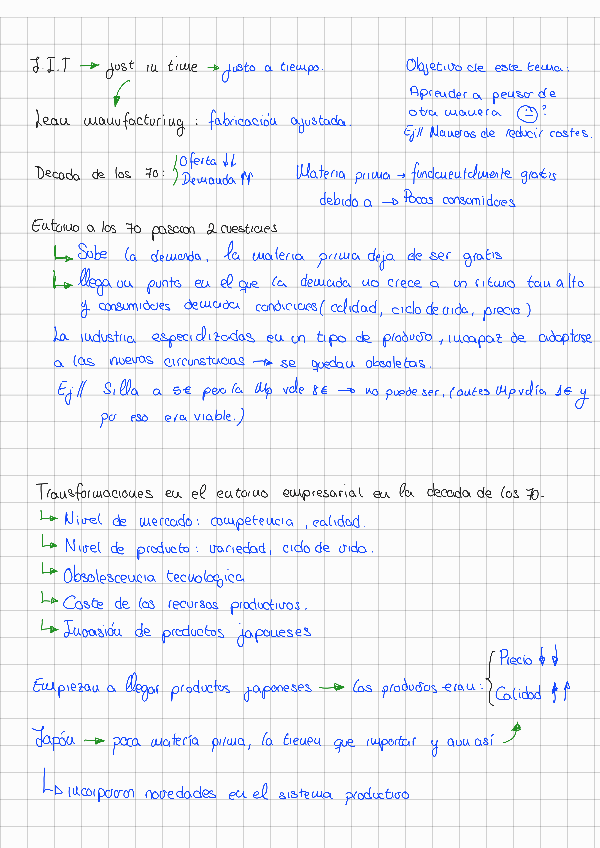 J.I.T → just in time → justo a tiempo.
Objetivo de este tema:
Aprender a pensar de
otra manera ?
Ej// Maneras de reducir costes.
Lean manufacturing : fabricación ajustada.
Decada de los 70: Oferta ↓↓
Demanda ↑↑
Materia prima → fundamentalmente gratis
debido a → Pocos consumidores
Entorno a los 70 pasaron 2 cuestiones
↳ Sube la demanda, la materia prima deja de ser gratis
↳ llega un punto en el que la demada no crece a un ritmo tan alto
y consumidores demada condiciones (calidad, ciclo de vida, precio)
La industria especializadas en un tipo de producto, incapaz de adaptarse
a las nuevas circunstacias → se quedan obsoletas.
Ej// Silla a 5€ pero la Mp vale 8€ → no puede ser, (antes Mp valía 1€ y
por eso era viable.)
Transformaciones en el entorno empresarial en la decada de los 70.
↳ Nivel de mercado: competencia, calidad.
↳ Nivel de producto: variedad, ciclo de vida.
↳ Obsolescencia tecnologica
↳ Coste de los recursos productivos.
↳ Invasión de productos japoneses
Empiezan a llegar productos japoneses → los productos eran: Precio ↓↓
Calidad ↑↑
Japón → poca materia prima, la tienen que importar y aun así
↳ incorporaron novedades en el sistema productivo